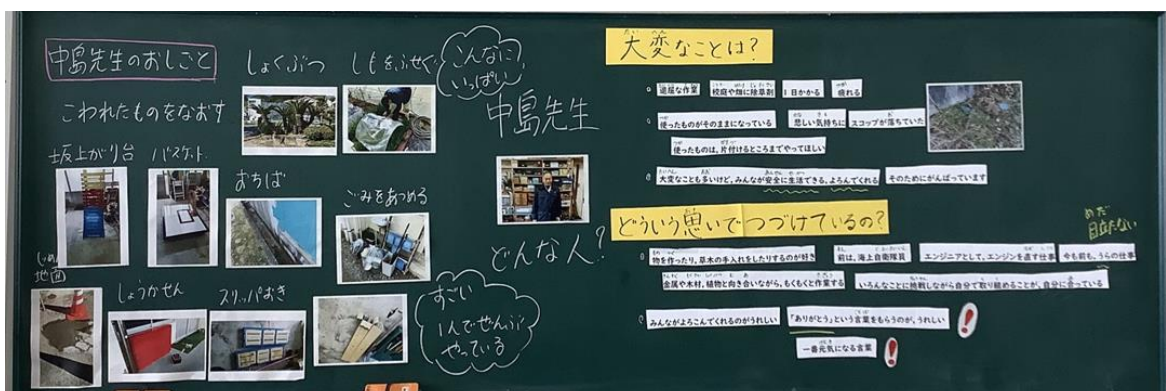 中島先生のおしごと
しょくぶつ
しもをふせぐ
こんなに
いっぱい
こわれたものをなおす
中島先生
坂上がり台
バスケット
おちば
ごみをあつめる
どんな人?
じめん
地面
しょうかせん
スリッパおき
すごい
1人でぜんぶ
やっている
たいへん
大変なことは?
退屈な作業 校庭や畑に除草剤 1日かかる 疲れる
使ったものがそのままになっている 悲しい気持ちに スコップが落ちていた
使ったものは、片付けるところまでやってほしい
大変なことも多いけど、みんなが安全に生活できる、よろんでくれる そのためにがんばっています
どういう思いでつづけているの?
めだ
目立たない
物を作ったり、草木の手入れをしたりするのが好き 前は、海上自衛隊員 エンジニアとして、エンジンを直す仕事 今も前も、うらの仕事
金属や木材、植物と向き合いながら、もくもくと作業する いろんなことに挑戦しながら自分で取り組めることが、自分に合っている
みんながよろこんでくれるのがうれしい 「ありがとう」という言葉をもらうのが、うれしい !
一番元気になる言葉 !